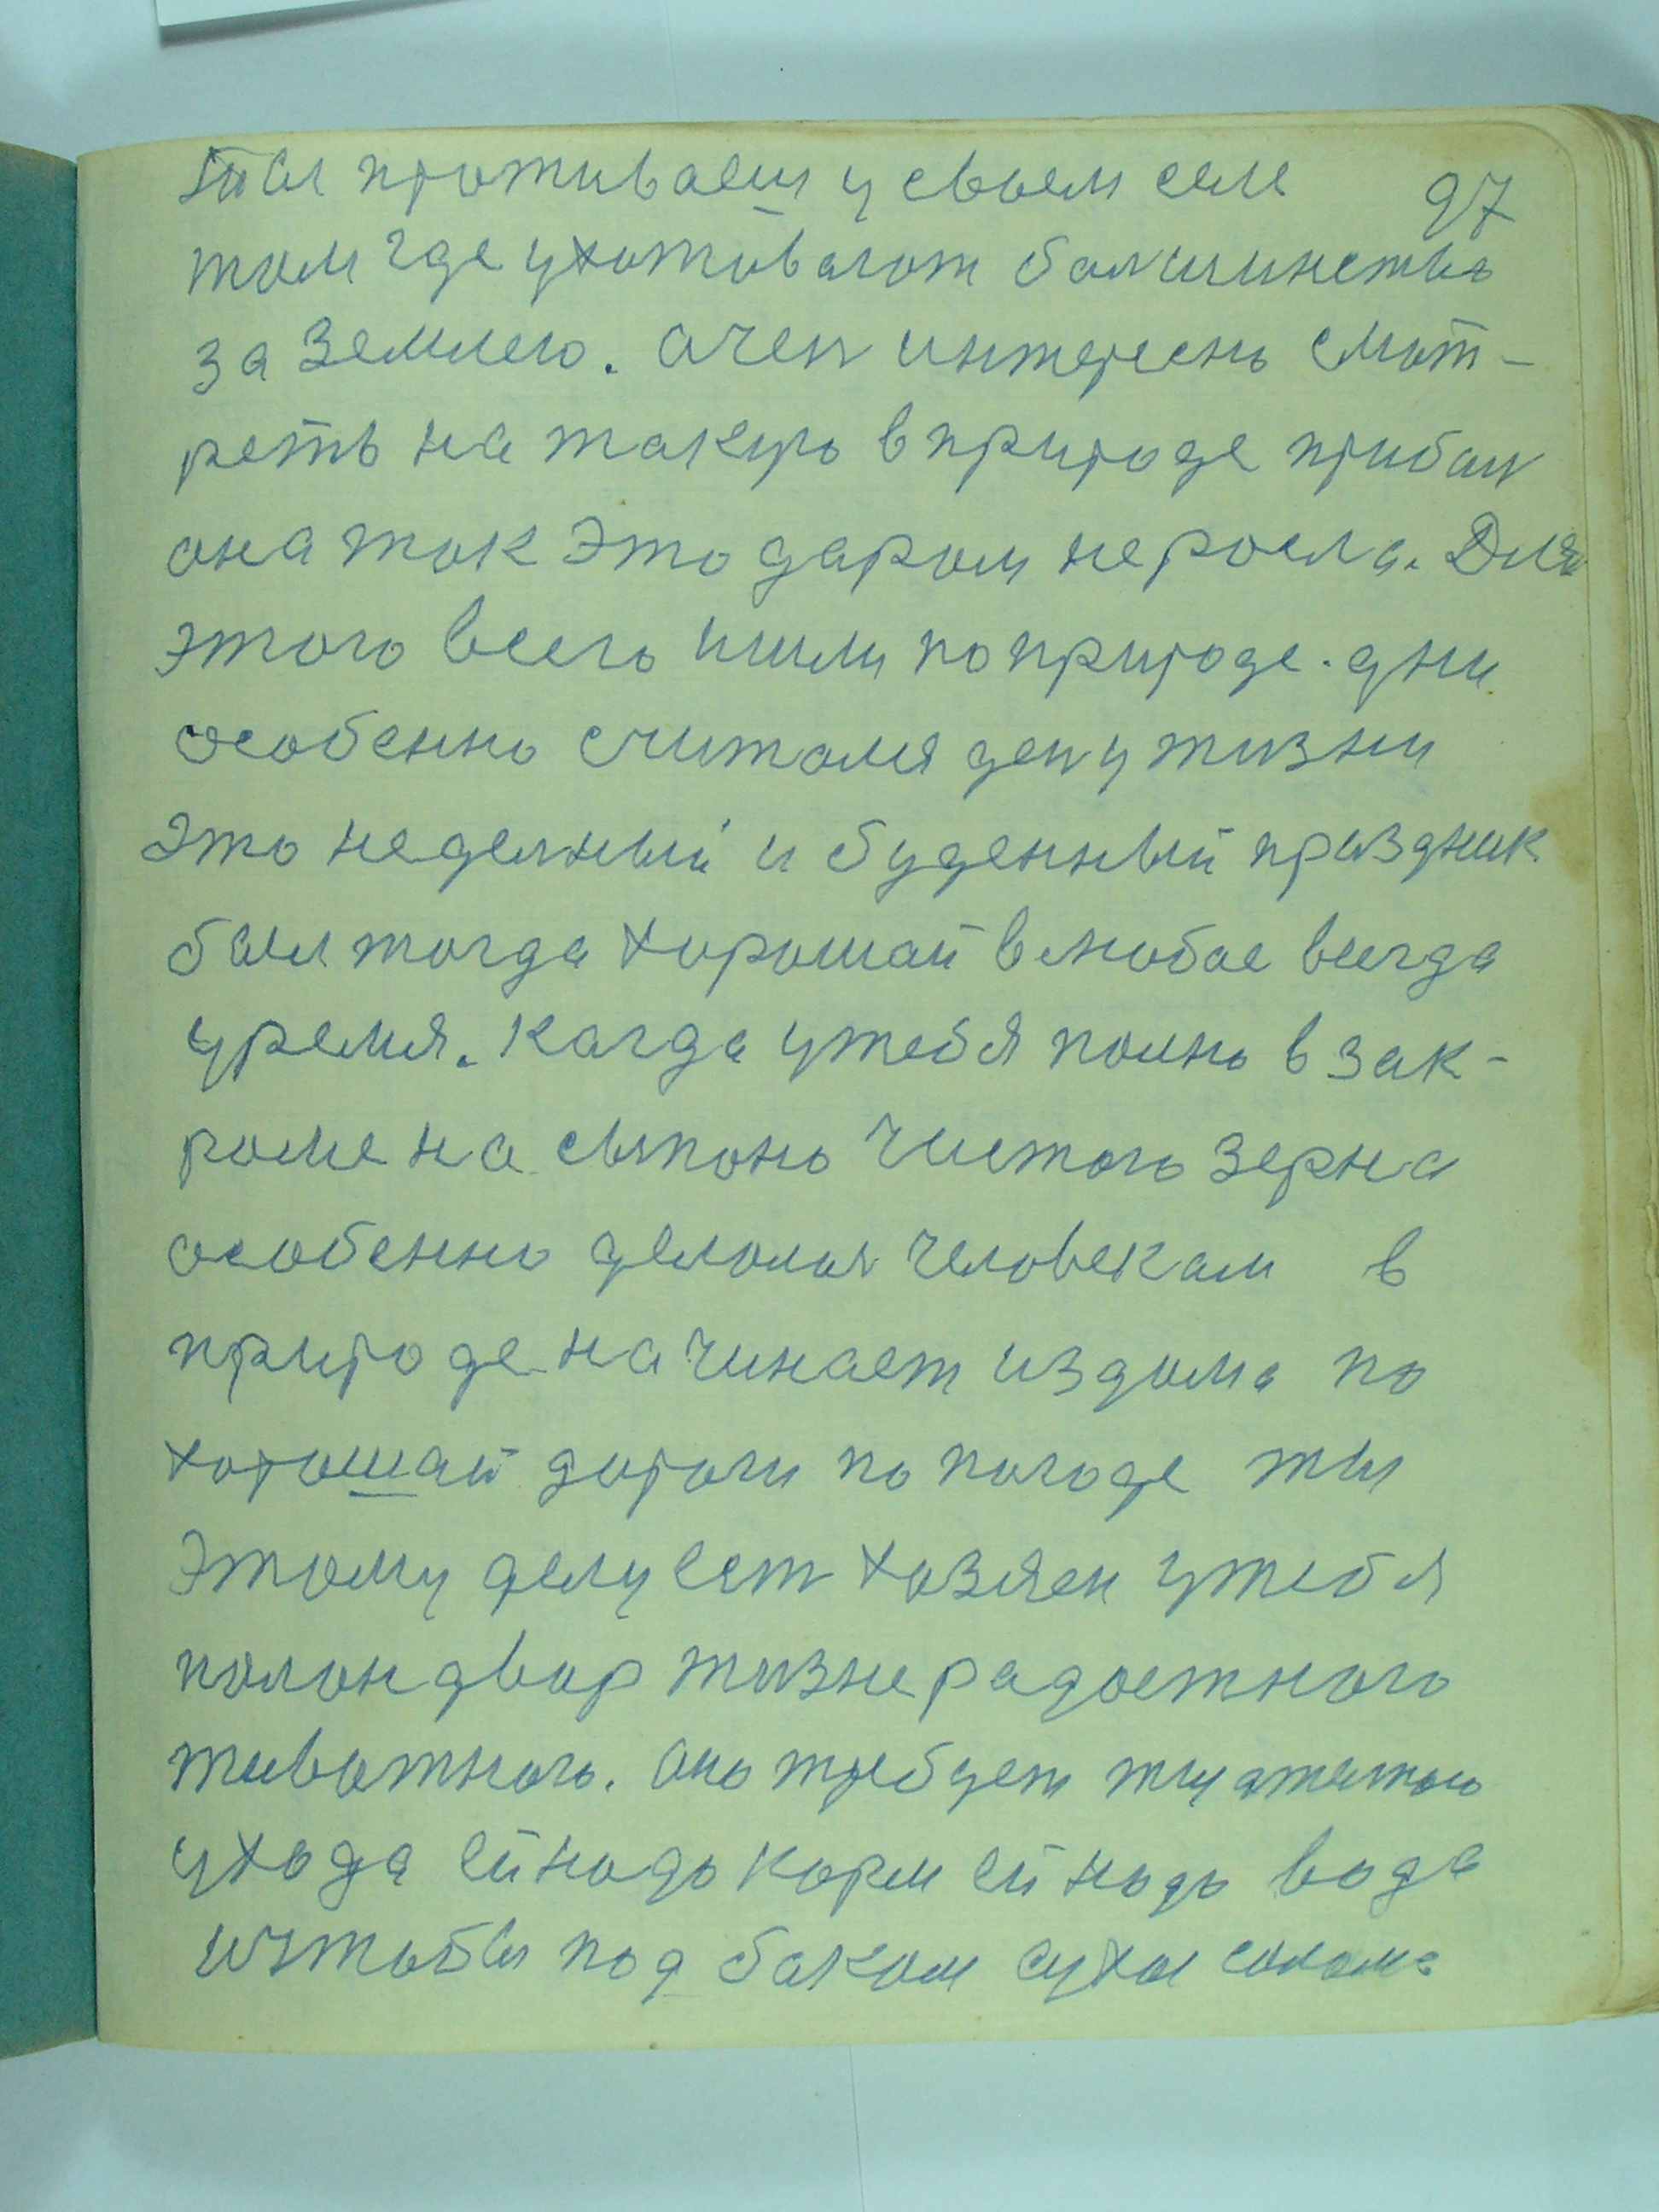 Ты проживаеш у своем селе 97
том где ухаживают балшинство
за землею. Очен интересно смот-
реть на такую в природе прибал
она так это даром не росла. Для
этого всего шли по природе. дни
особенно считался ден у жизни
это неделный и буденный праздник
был тогда хорошай в любое всегда
уремя. Кагда у тебя полно в зак-
роме насыпоно чистого зерна
особенно делалия человекам в
природе начинает из дома по
хорошай дороги по погоде ты
этому делу ест хозяен у тебя
полон двор жизнерадостного
животного. Оно требует тщателного
ухода ей надо корм ей надо вода
и чтобы под баком сухая солома